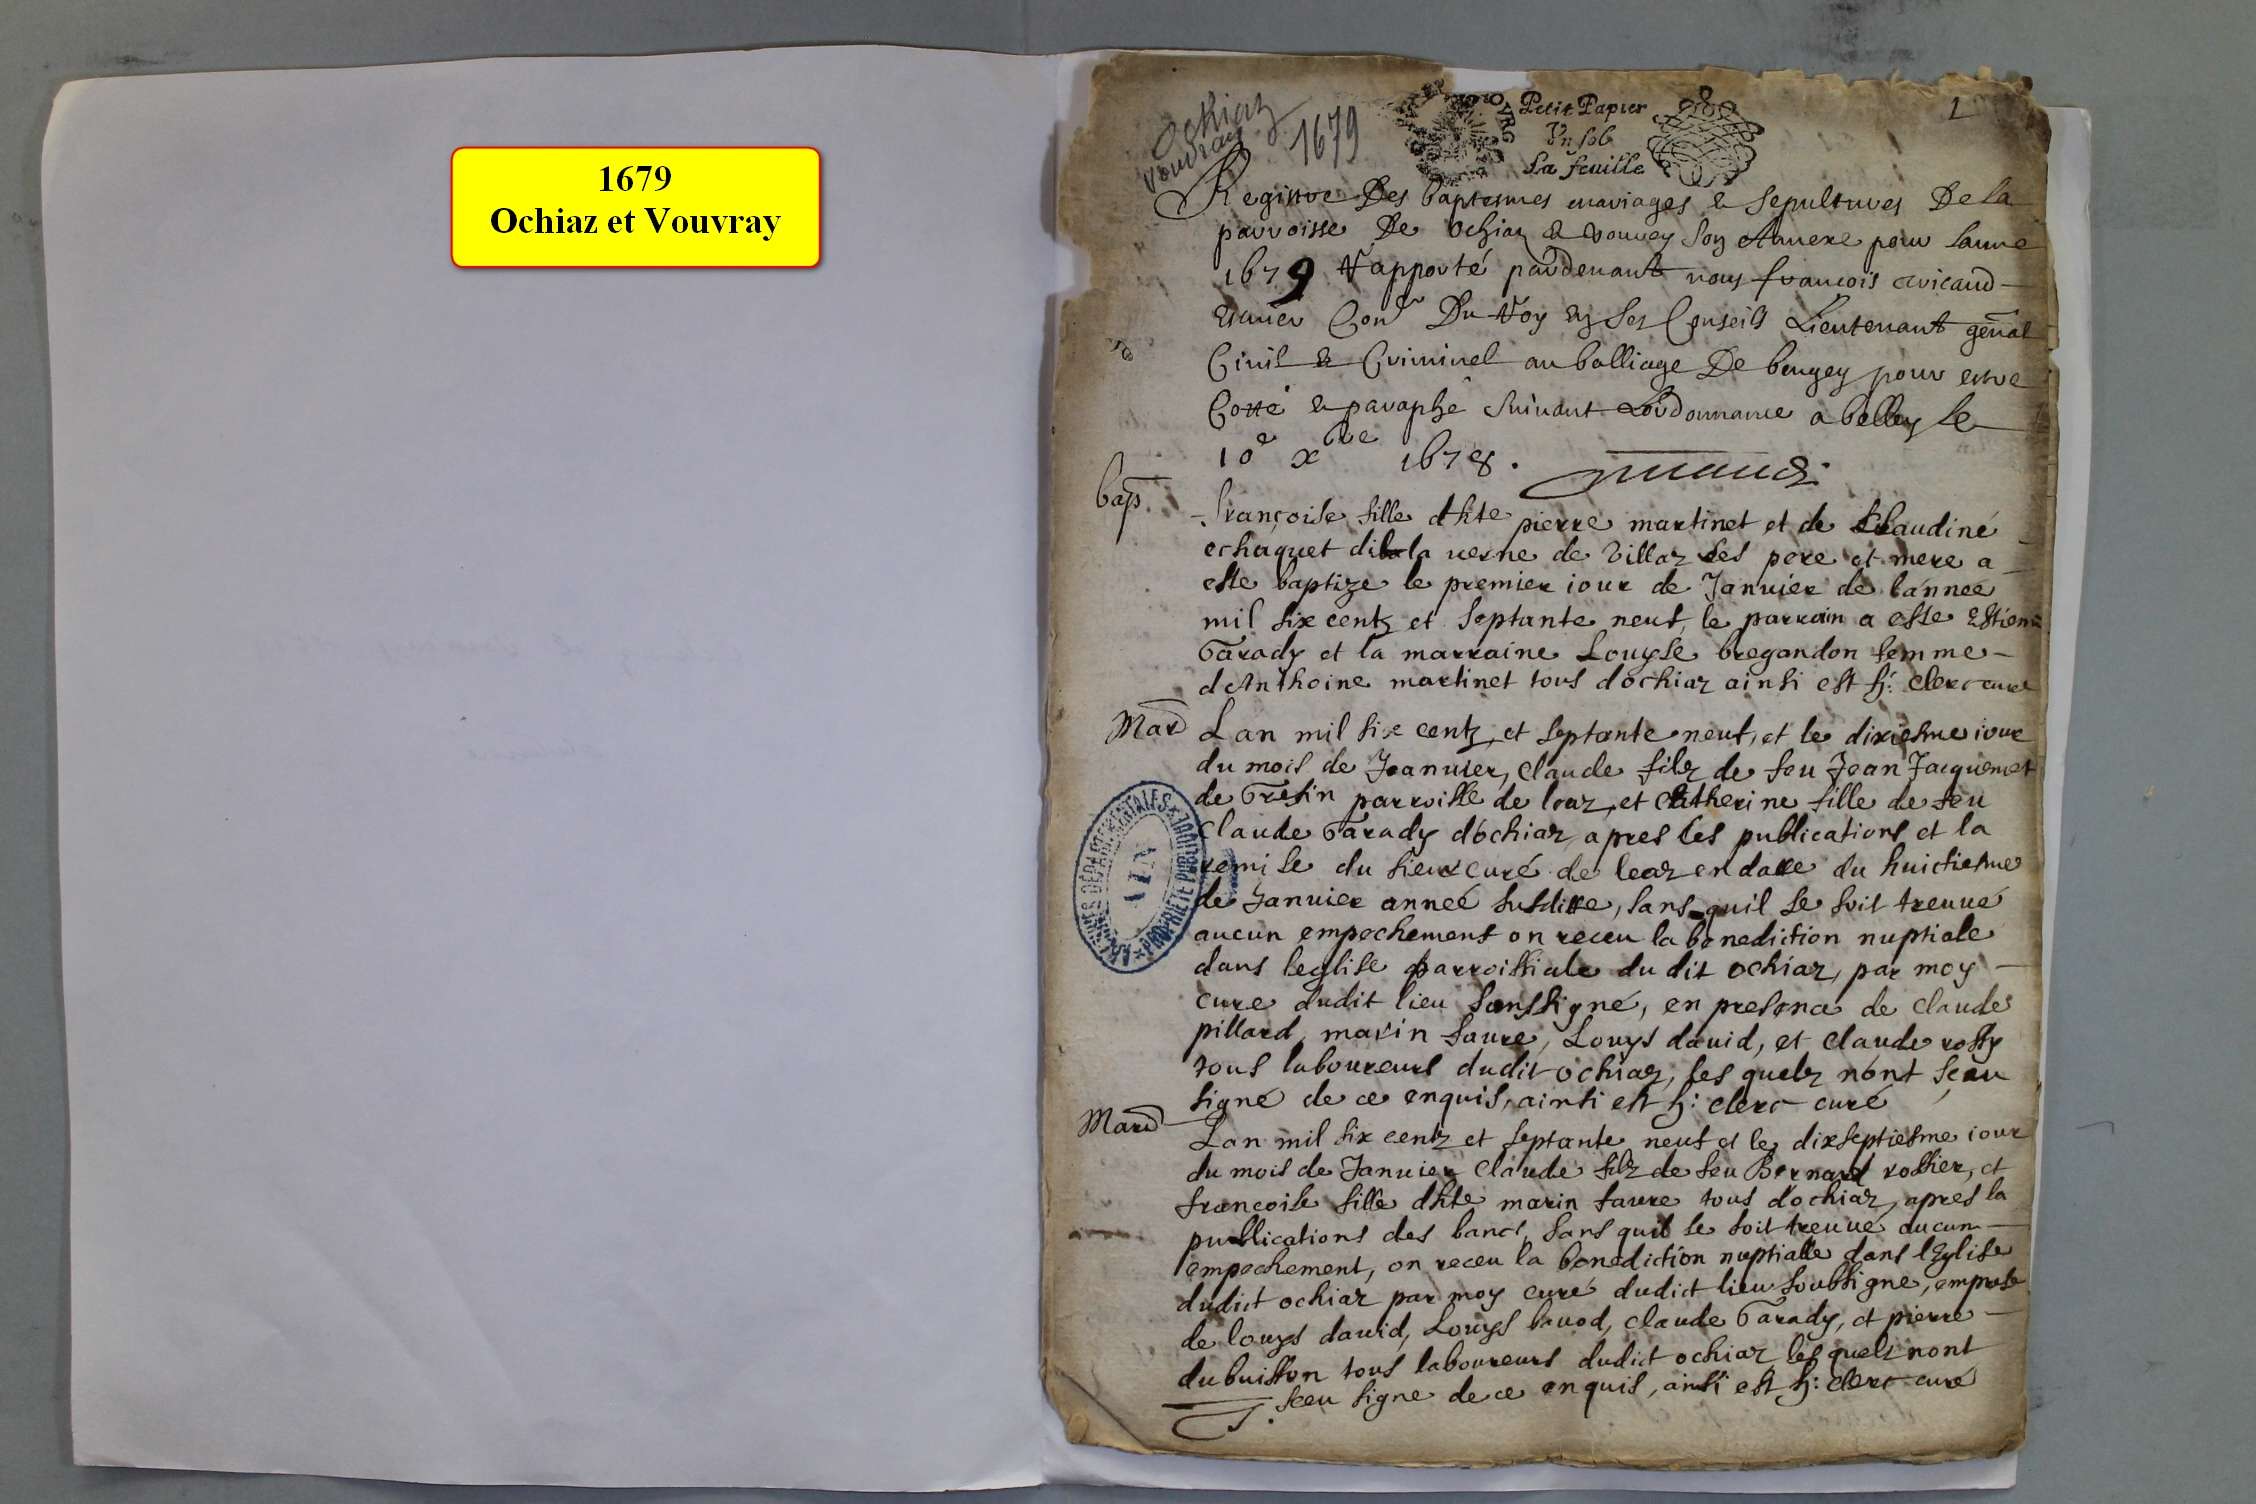 1679
Ochiaz et Vouvray
Ochiaz
Vouvray
1679
Petit Papier
Un sol
La feuille
1
Registre Des baptesmes mariages & sepultures De la
parroisse De ochiaz & vouvrey son Annexe pour lanne
1679 rapporté pardevant nous francois
Con.r Du Roy en ses Conseils Lieutenant gen̄al
Civil & Criminel au balliage De beugey pour estre
Cotté & paraphé suivant Lordonnance a belley le
10e xbre 1678.
bap.
françoise fille dhte pierre martinet et de Claudine
echaquet la verne de villaz ses pere et mere a
este baptize le premier iour de Januier de lánneé
mil six centz et septante neuf, le parrain a este Estienne
Tarady et la marraine Louyse bregandon femme
dAnthoine martinet tous dochiaz ainsi est h: clerc curé
Mar
Lan mil six centz, et septante neuf, et le dixiesme iour
du mois de Jeanuier, claude filz de feu Jean Jacquemet
de Gresin parroisse de leaz, et Catherine fille de feu
claude Tarady dóchiaz, apres les publications et la
remise du sieur curé de leaz en datte du huictiesme
de Januier anneé susditte, sans quil se soit treuué
aucun empechement on receu la benediction nuptiale
dans leglise parroissiale du dit ochiaz, par moy
cure dudit lieu soussigné, en presence de claude
pillard, marin faure, Louys dauid, et claude rossy
tous laboureurs dudit ochiaz, les quelz nónt sçeu
signé de ce enquis, ainsi est h: clerc curé
ARCHIVES DÉPARTEMENTALES
AIN
PROPRIÉTÉ PUBLIQUE
Mar
Lan mil six centz et septante neuf et le dixseptiesme iour
du mois de Januier Claude filz de feu Bernard rossier, et
francoise fille dhte marin faure tous dochiaz, apres la
publications des bancs, sans quil se soit treuué aucun
empechement, on receu la benediction nuptialle dans lEglise
dudict ochiaz par moy curé dudict lieu soubsigne, em
de louys dauid, Louys bauod, claude Tarady, et pierre
dubuisson tous laboureurs dudict ochiaz les quelz nont
sceu signe de ce enquis, ainsi est h: clerc curé